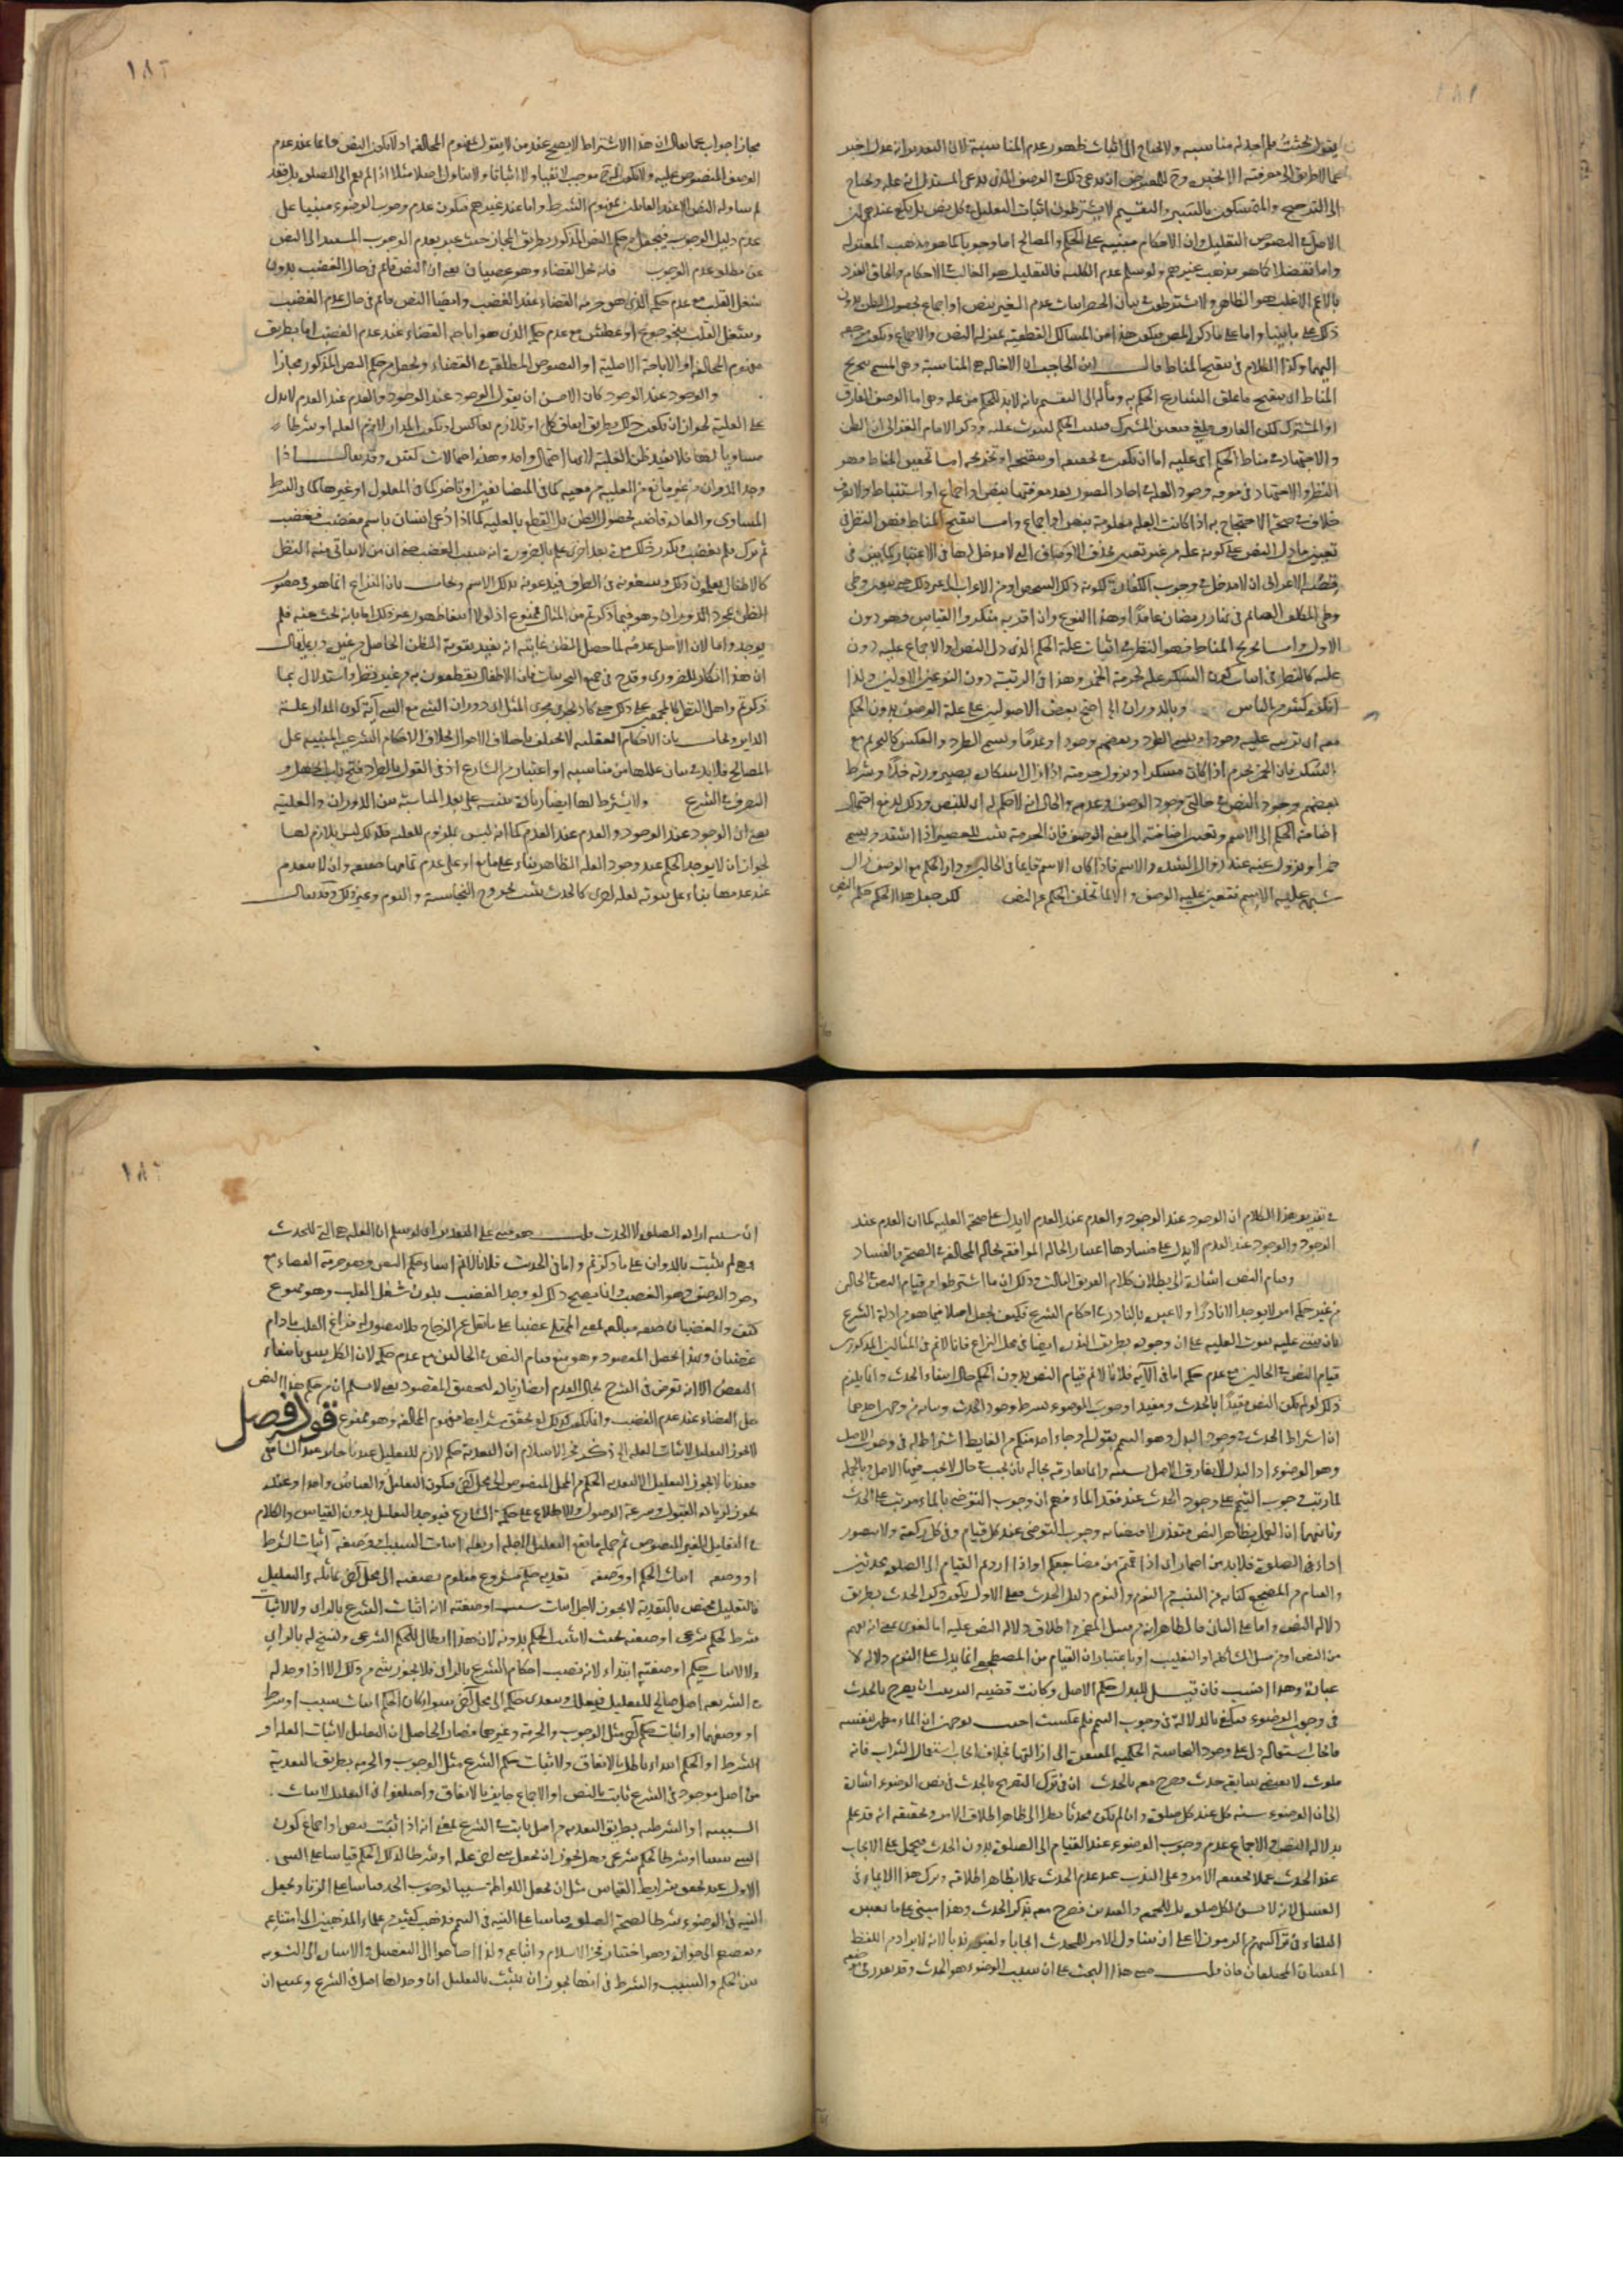 يقول بحثت فلم اجد له مناسبة ولا يحتاج الى اثبات ظهور عدم المناسبة لان التقدير انه عدل اخبر
عما لا طريق الى معرفته الا بخبره وح للمعترض ان يدعى ذلك في الوصف الذى يدعى المستدل انه علة ويحتاج
الى الترجيح والمتمسكون بالسبر والتقسيم لا يشترطون اثبات التعليل في كل نص بل يكفى عندهم ان
الاصل في النصوص التعليل وان الاحكام مبنية على الحكم والمصالح اما وجوبا كما هو مذهب المعتزلة
واما تفضلا كما هو مذهب غيرهم ولو سلم عدم الكلية فالتعليل هو الغالب في الاحكام والحاق الفرد
بالاعم الاغلب هو الظاهر ولا يشترطون في بيان الحصر اثبات عدم الغير بنص او اجماع لحصول الظن بدون
ذلك على ما بينا واما على ما ذكره المص فيكون هذا من المسالك القطعية بمنزلة النص والاجماع ويكون مرجعه
اليهما وكذا الكلام في تنقيح المناط قال ابن الحاجب ان الاخالة هى المناسبة وهى المسمى بتخريج
المناط اى بتنقيح ما علق الشارع الحكم به ومآله الى التقسيم بانه لا بد للحكم من علة وهى اما الوصف الفارق
او المشترك لكن الفارق ملغى فيتعين المشترك فيثبت الحكم لثبوت علته وذكر الامام الغزالى ان النظر
والاجتهاد في مناط الحكم اى علته اما ان يكون في تحقيقه او تنقيحه او تخريجه اما تحقيق المناط فهو
النظر والاجتهاد في معرفة وجود العلة في احاد الصور بعد معرفتها بنص او اجماع او استنباط ولا نعرف
خلافا في صحة الاحتجاج به اذا كانت العلة معلومة بنص او اجماع واما تنقيح المناط فهو النظر في
تعيين ما دل النص على كونه علة من غير تعيين بحذف الاوصاف التى لا مدخل لها في الاعتبار كما بين في
قصة الاعرابى ان لا مدخل في وجوب الكفارة لكونه ذلك الشخص او من الاعراب الى غير ذلك حتى يتعين وطى
وطى المكلف الصائم في نهار رمضان عامدا وهذا النوع وان اقر به منكروا القياس فهو دون
الاول واما تخريج المناط فهو النظر في اثبات علة الحكم الذى دل النص او الاجماع عليه دون
علته كالنظر في اثبات كون السكر علة لحرمة الخمر وهذا في الرتبة دون النوعين الاولين ولذا
انكره كثير من الناس وبالدوران الى احتج بعض الاصوليين على علة الوصف بدوران الحكم
معه اى ترتبه عليه وجودا ويسمى الطرد وبعضهم وجودا وعدما ويسمى الطرد والعكس كالتحريم مع
السكر فان الخمر يحرم اذا كان مسكرا ويزول حرمته اذا زال اسكاره بصيرورته خلا وشرط
بعضهم وجود النص في حالتى وجود الوصف وعدمه والحال انه لا حكم له اى للنص وذلك لدفع احتمال
اضافة الحكم الى الاسم وتعين اضافته الى معنى الوصف فان الحرمة تثبت للعصير اذا اشتد ويسمى
خمرا ويزول عنه عند زوال الشدة والاسم فاذا كان الاسم قائما في الحالين ودار الحكم مع الوصف زال
شبهة علية الاسم فتعين علية الوصف والا لما تخلف الحكم عن النص لكن جعل هذا الحكم حكم النص
مجازا جواب عما يقال ان هذا الاشتراط لا يصح عند من لا يقول بمفهوم المخالفة اذ لا يكون النص قائما عند عدم
الوصف المنصوص عليه ولا يكون للشرع موجب لا نفيا ولا اثباتا ولا يتناول اصلا مثلا اذا لم يقم الى الصلوة بل قعد
لم يتناوله النص الا عند القائلين بمفهوم الشرط واما عند غيرهم فيكون عدم وجوب الوضوء مبنيا على
عدم دليل الوجوب فيجعل من حكم النص المذكور بطريق المجاز حيث عبر بعدم الوجوب المستند الى النص
عن مطلق عدم الوجوب فانه يحل القضاء وهو غضبان يعنى ان النص قائم في حال الغضب بدون
شغل القلب مع عدم حكمه الذى هو حرمة القضاء عند الغضب وايضا النص قائم في حال عدم الغضب
وشغل القلب بنحو جوع او عطش مع عدم حكمه الذى هو اباحة القضاء عند عدم الغضب اما بطريق
مفهوم المخالفة او الاباحة الاصلية او النصوص المطلقة في القضاء ويجعل من حكم النص المذكور مجازا
والوجود عند الوجود كان الاحسن ان يقول الوجود عند الوجود والعدم عند العدم لا يدل
على العلية لجواز ان يكون ذلك بطريق اتفاق كلى او تلازم تعاكس او يكون المدار لازم العلة او شرطا
مساويا لها فلا يفيد ظن العلية لانها احتمال واحد وهذه احتمالات كثيرة وقد يقال اذا
وجد الدوران من غير مانع من العلية من معية كما في المتضايفين او تاخر كما في المعلول او غيرها كما في الشرط
المساوى والعادة قاضية بحصول الظن بل القطع بالعلية كما اذا دعى انسان باسم مغضب فغضب
ثم ترك فلم يغضب وتكرر ذلك مرة بعد اخرى علم بالضرورة انه سبب الغضب حتى ان من لا يتاتى منه النظر
كالاطفال يعلمون ذلك ويتبعونه في الطرق فيدعونه بذلك الاسم ويجاب بان النزاع انما هو في حصول
الظن بمجرد الدوران وهو فيما ذكرتم من المثال ممنوع اذ لولا انتفاء ظهور غير ذلك اما بانه بحث عنه فلم
يوجد واما لان الاصل عدمه لما حصل الظن غايته انه يفيد تقوية الظن الحاصل من غيره وربما يقال
ان هذا انكار للضرورى وقدح في جميع التجربيات فان الاطفال يقطعون به من غير نظر واستدلال بما
ذكرتم واهل النظر كالمجمعين على ذلك حتى كاد يجرى مجرى المثل ان دوران الشئ مع الشئ آية كون المدار علة
الدائر ويجاب بان الاحكام العقلية لا تختلف باختلاف الاحوال بخلاف الاحكام الشرعية المبنية على
المصالح فلا بد في بيان عللها من مناسبة او اعتبار من الشارع اذ في القول بالطرد فتح باب الجهل و
التصرف في الشرع ولا يشترط لها ايضا زيادة تنبيه على بعد المناسبة بين الدوران والعلية
يعنى ان الوجود عند الوجود والعدم عند العدم كما انه ليس بملزوم للعلة فكذلك ليس بلازم لها
لجواز ان لا يوجد الحكم عند وجود العلة الظاهرة بناء على مانع او على عدم تمامها حقيقة وان لا ينعدم
عند عدمها بناء على ثبوته لعلة اخرى كالحدث يثبت بخروج النجاسة والنوم وغير ذلك وقد يقال
في تقرير هذا الكلام ان الوجود عند الوجود والعدم عند العدم لا يدل على صحة العلية كما ان العدم عند
الوجود والوجود عند العدم لا يدل على فسادها اعتبار الحالة الموافقة بحالة المخالفة في الصحة والفساد
وقيام النص اشارة الى بطلان كلام الفريق الثالث وذلك ان ما اشترطوا من قيام النص في الحالين
من غير حكم امر لا يوجد الا نادرا ولا عبرة بالنادر في احكام الشرع فكيف يجعل اصلا فيما هو من ادلة الشرع
بان يبتنى عليه ثبوت العلية على ان وجوده بطريق الندرة ايضا في محل النزاع فانا لا نم في المثالين المذكورين
قيام النص في الحالين مع عدم حكمه اما في الآية فلانا لا نم قيام النص بدون الحكم حال انتفاء الحدث وانما يلزم
ذلك لو لم يكن النص مقيدا بالحدث ومفيدا وجوب الوضوء بشرط وجود الحدث وبيانه من وجهين احدهما
ان اشتراط الحدث في وجوب البدل وهو التيمم بقوله او جاء احد منكم من الغايط اشتراط له في وجوب الاصل
وهو الوضوء اذ البدل لا يفارق الاصل بسببه وانما يفارقه بحاله بان يجب في حال لا يجب فيها الاصل وبالجملة
لما رتب وجوب التيمم على وجود الحدث عند فقد الماء فهم ان وجوب التوضى بالماء مرتب على الحدث
وثانيهما ان العمل بظاهر النص متعذر لاقتضائه وجوب التوضى عند كل قيام وفي كل ركعة ولا يتصور
اداء في الصلوة فلا بد من اضمار اى اذا قمتم من مضاجعكم او اذا اردتم القيام الى الصلوة محدثين
والقيام من المضجع كناية عن التنبه من النوم والنوم دليل الحدث فعلى الاول يكون ذكر الحدث بطريق
دلالة النص واما على الثانى فالظاهر انه من قبيل المضمر واطلاق دلالة النص عليه اما لغوى بمعنى انه يفهم
من النص او من قبيل المشاكلة او التغليب او باعتبار ان القيام من المضجع انما يدل على النوم دلالة لا
عبارة وهذا انسب فان قيل للبدل حكم الاصل وكانت قضية الترتيب ان يصرح بالحدث
في وجوب الوضوء ويكتفى بالدلالة في وجوب التيمم فلم عكست اجيب بوجهين ان الماء مطهر بنفسه
فايجاب استعماله دل على وجود النجاسة الحكمية المفتقرة الى ازالتها بخلاف ايجاب استعمال التراب فانه
ملوث لا يقتضى سابقة حدث فصرح معه بالحدث ان في ترك التصريح بالحدث في نص الوضوء اشارة
الى ان الوضوء سنة لكل عند كل صلوة وان لم يكن محدثا نظرا الى ظاهر اطلاق الامر وتحقيقه انه قد علم
بدلالة النص والاجماع عدم وجوب الوضوء عند القيام الى الصلوة بدون الحدث فيحمل على الايجاب
عند الحدث عملا بحقيقة الامر وعلى الندب عند عدم الحدث عملا بظاهر اطلاقه وترك هذا الايماء في
الغسل لانه لا يسن لكل صلوة بل للجمعة والعيدين فصرح معه بذكر الحدث وهذا مبنى على ما بعض
البلغاء في تراكيبهم من الرموز لا على ان يتناول الامر للمحدث ايجابا ولغيره ندبا لانه لا يراد من اللفظ
المعنيان المختلفان فان قلت هب هذا البحث على ان سبب الوضوء هو الحدث وقد تقدم في موضعه
ان سببه ارادة الصلوة لا الحدث قلت هو مبنى على التقدير اى لو سلم ان العلة هى الحدث
فهى لم تثبت بالدوران على ما ذكرتم واما في الحديث فلانا لا نم انتفاء حكم النص وهو حرمة القضاء مع
وجود الوصف وهو الغضب وانما يصح ذلك لو وجد الغضب بدون شغل القلب وهو ممنوع
كيف والغضبان صيغة مبالغة بمعنى الممتلى غضبا على ما نقل عن الزجاج فلا يتصور له فراغ القلب ما دام
غضبان وبهذا يحصل المقصود وهو منع قيام النص في الحالين مع عدم حكمه لان الكل ينتفى بانتفاء
البعض الا انه تعرض في الشرح لحال العدم ايضا زيادة لتحقيق المقصود يعنى لا نسلم ان من حكم هذا النص
حل القضاء عند عدم الغضب وانما يكون كذلك لو تحقق شرايط مفهوم المخالفة وهو ممنوع قوله فصل
لا يجوز التعليل لاثبات العلة الى ذكر فخر الاسلام ان التعدية حكم لازم للتعليل عندنا جائز عند الشافعى
فعندنا لا يجوز التعليل الا لتعدية الحكم من المحل المنصوص الى محل آخر فيكون التعليل والقياس واحدا وعنده
يجوز لزيادة القبول وسرعة الوصول والاطلاع على حكمة الشارع فيوجد التعليل بدون القياس والكلام
في التعليل الغير المنصوص ثم جملة ما يقع التعليل لاجله اربعة اثبات السبب او صفته اثبات الشرط
او وصفه اثبات الحكم او وصفه تعدية حكم مشروع معلوم بصفته الى محل آخر يماثله في التعليل
فالتعليل مختص بالتعدية لا يجوز لاجل اثبات سبب او صفته لانه اثبات الشرع بالراى ولا لاثبات
شرط لحكم شرعى او صفته بحيث لا يثبت الحكم بدونه لان هذا ابطال للحكم الشرعى ونسخ له بالراى
ولا لاثبات حكم او صفته ابتداء لانه نصب احكام الشرع بالراى فلا يجوز شئ من ذلك الا اذا وجد له
في الشريعة اصل صالح للتعليل فيعلل ويتعدى حكمه الى محل آخر سواء كان الحكم اثبات سبب او شرط
او وصفهما او اثبات حكم آخر مثل الوجوب والحرمة وغيرهما فصار الحاصل ان التعليل لاثبات العلة او
الشرط او الحكم ابتداء باطل بالاتفاق ولاثبات حكم الشرع مثل الوجوب والحرمة بطريق التعدية
من اصل موجود في الشرع ثابت بالنص او الاجماع جايز بالاتفاق واختلفوا في التعليل لاثبات
السببية او الشرطية بطريق التعدية من اصل ثابت في الشرع بمعنى انه اذا ثبت بنص او اجماع كون
الشئ سببا او شرطا لحكم شرعى فهل يجوز ان يجعل شئ آخر علة او شرطا لذلك الحكم قياسا على الشئ
الاول عند تحقق شرايط القياس مثل ان يجعل اللواطة سببا لوجوب الحد قياسا على الزنا ويجعل
النية في الوضوء شرطا لصحة الصلوة قياسا على النية في التيمم فذهب كثير من علماء المذهبين الى امتناعه
وبعضهم الى جوازه وهو اختيار فخر الاسلام واتباعه ولذا احتاجوا الى التفصيل والاشارة الى التسوية
بين الحكم والسبب والشرط في انها يجوز ان تثبت بالتعليل ان وجد لها اصل في الشرع ويمتنع ان